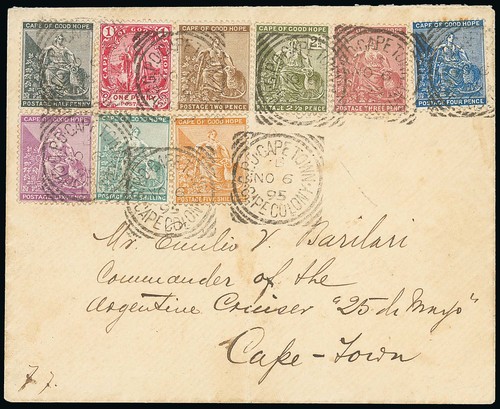 CAPE OF GOOD HOPE
POSTAGE HALF PENNY
CAPE OF GOOD HOPE
1
1
ONE PENNY
CAPE OF GOOD HOPE
POSTAGE TWO PENCE
POSTAGE 2½ PENCE
POSTAGE THREE PENCE
CAPE OF GOOD HOPE
POSTAGE FOUR PENCE
CAPE OF GOOD HOPE
CAPE OF GOOD HOPE
CAPE TOWN
NO 6
95
CAPE COLONY
Mr. Emilio V. Barilari
Commander of the
Argentine Cruiser "25 de Mayo"
Cape-Town